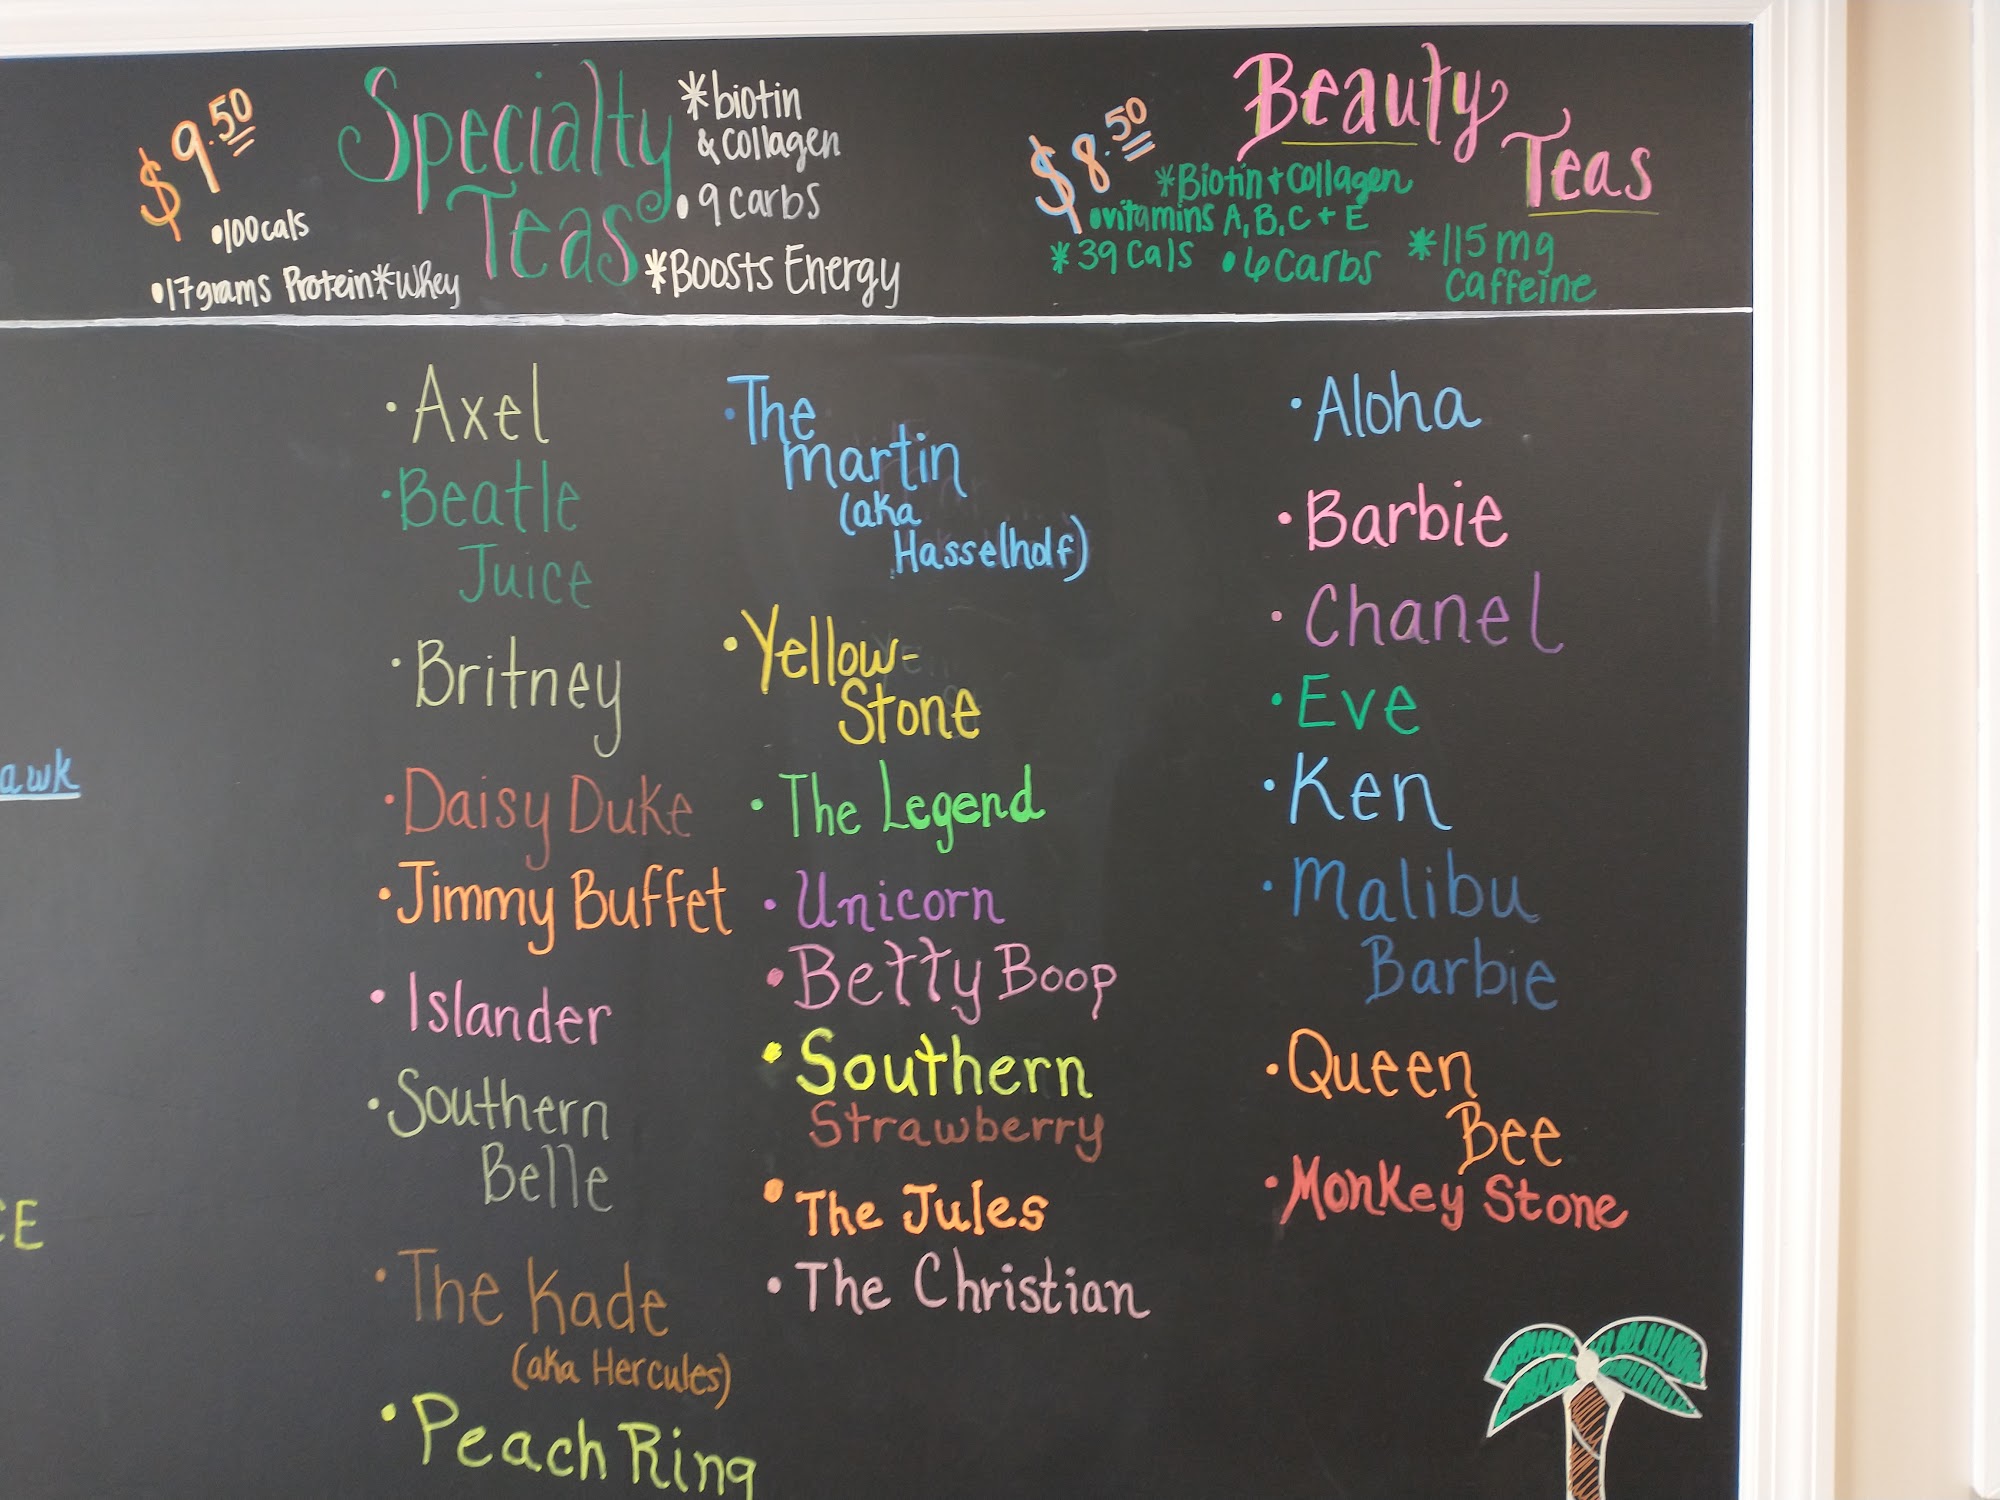 $9.50
Specialty
Teas
*biotin
& collagen
•9 carbs
•100 cals
•17 grams Protein *Whey
*Boosts Energy
$8.50
Beauty
Teas
*Biotin + collagen
•vitamins A, B, C + E
*39 cals •6 carbs
*115 mg
caffeine
•Axel
•Beatle
Juice
•Britney
•Daisy Duke
•Jimmy Buffet
•Islander
•Southern
Belle
•The Kade
(aka Hercules)
•Peach Ring
•The
martin
(aka
Hasselhof)
•Yellow-
Stone
•The Legend
•Unicorn
•Betty Boop
•Southern
Strawberry
•The Jules
•The Christian
•Aloha
•Barbie
•Chanel
•Eve
•Ken
•Malibu
Barbie
•Queen
Bee
•Monkey Stone
awk
CE